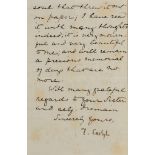 soul that threw it out
on paper; I have read
it with many thoughts
indeed, it is very
and very beautiful
to me; and will remain
a precious memorial
of days that are no
more.
With many grateful
regards to your Sister
and self, I remain
Sincerely yours,
T. Carlyle